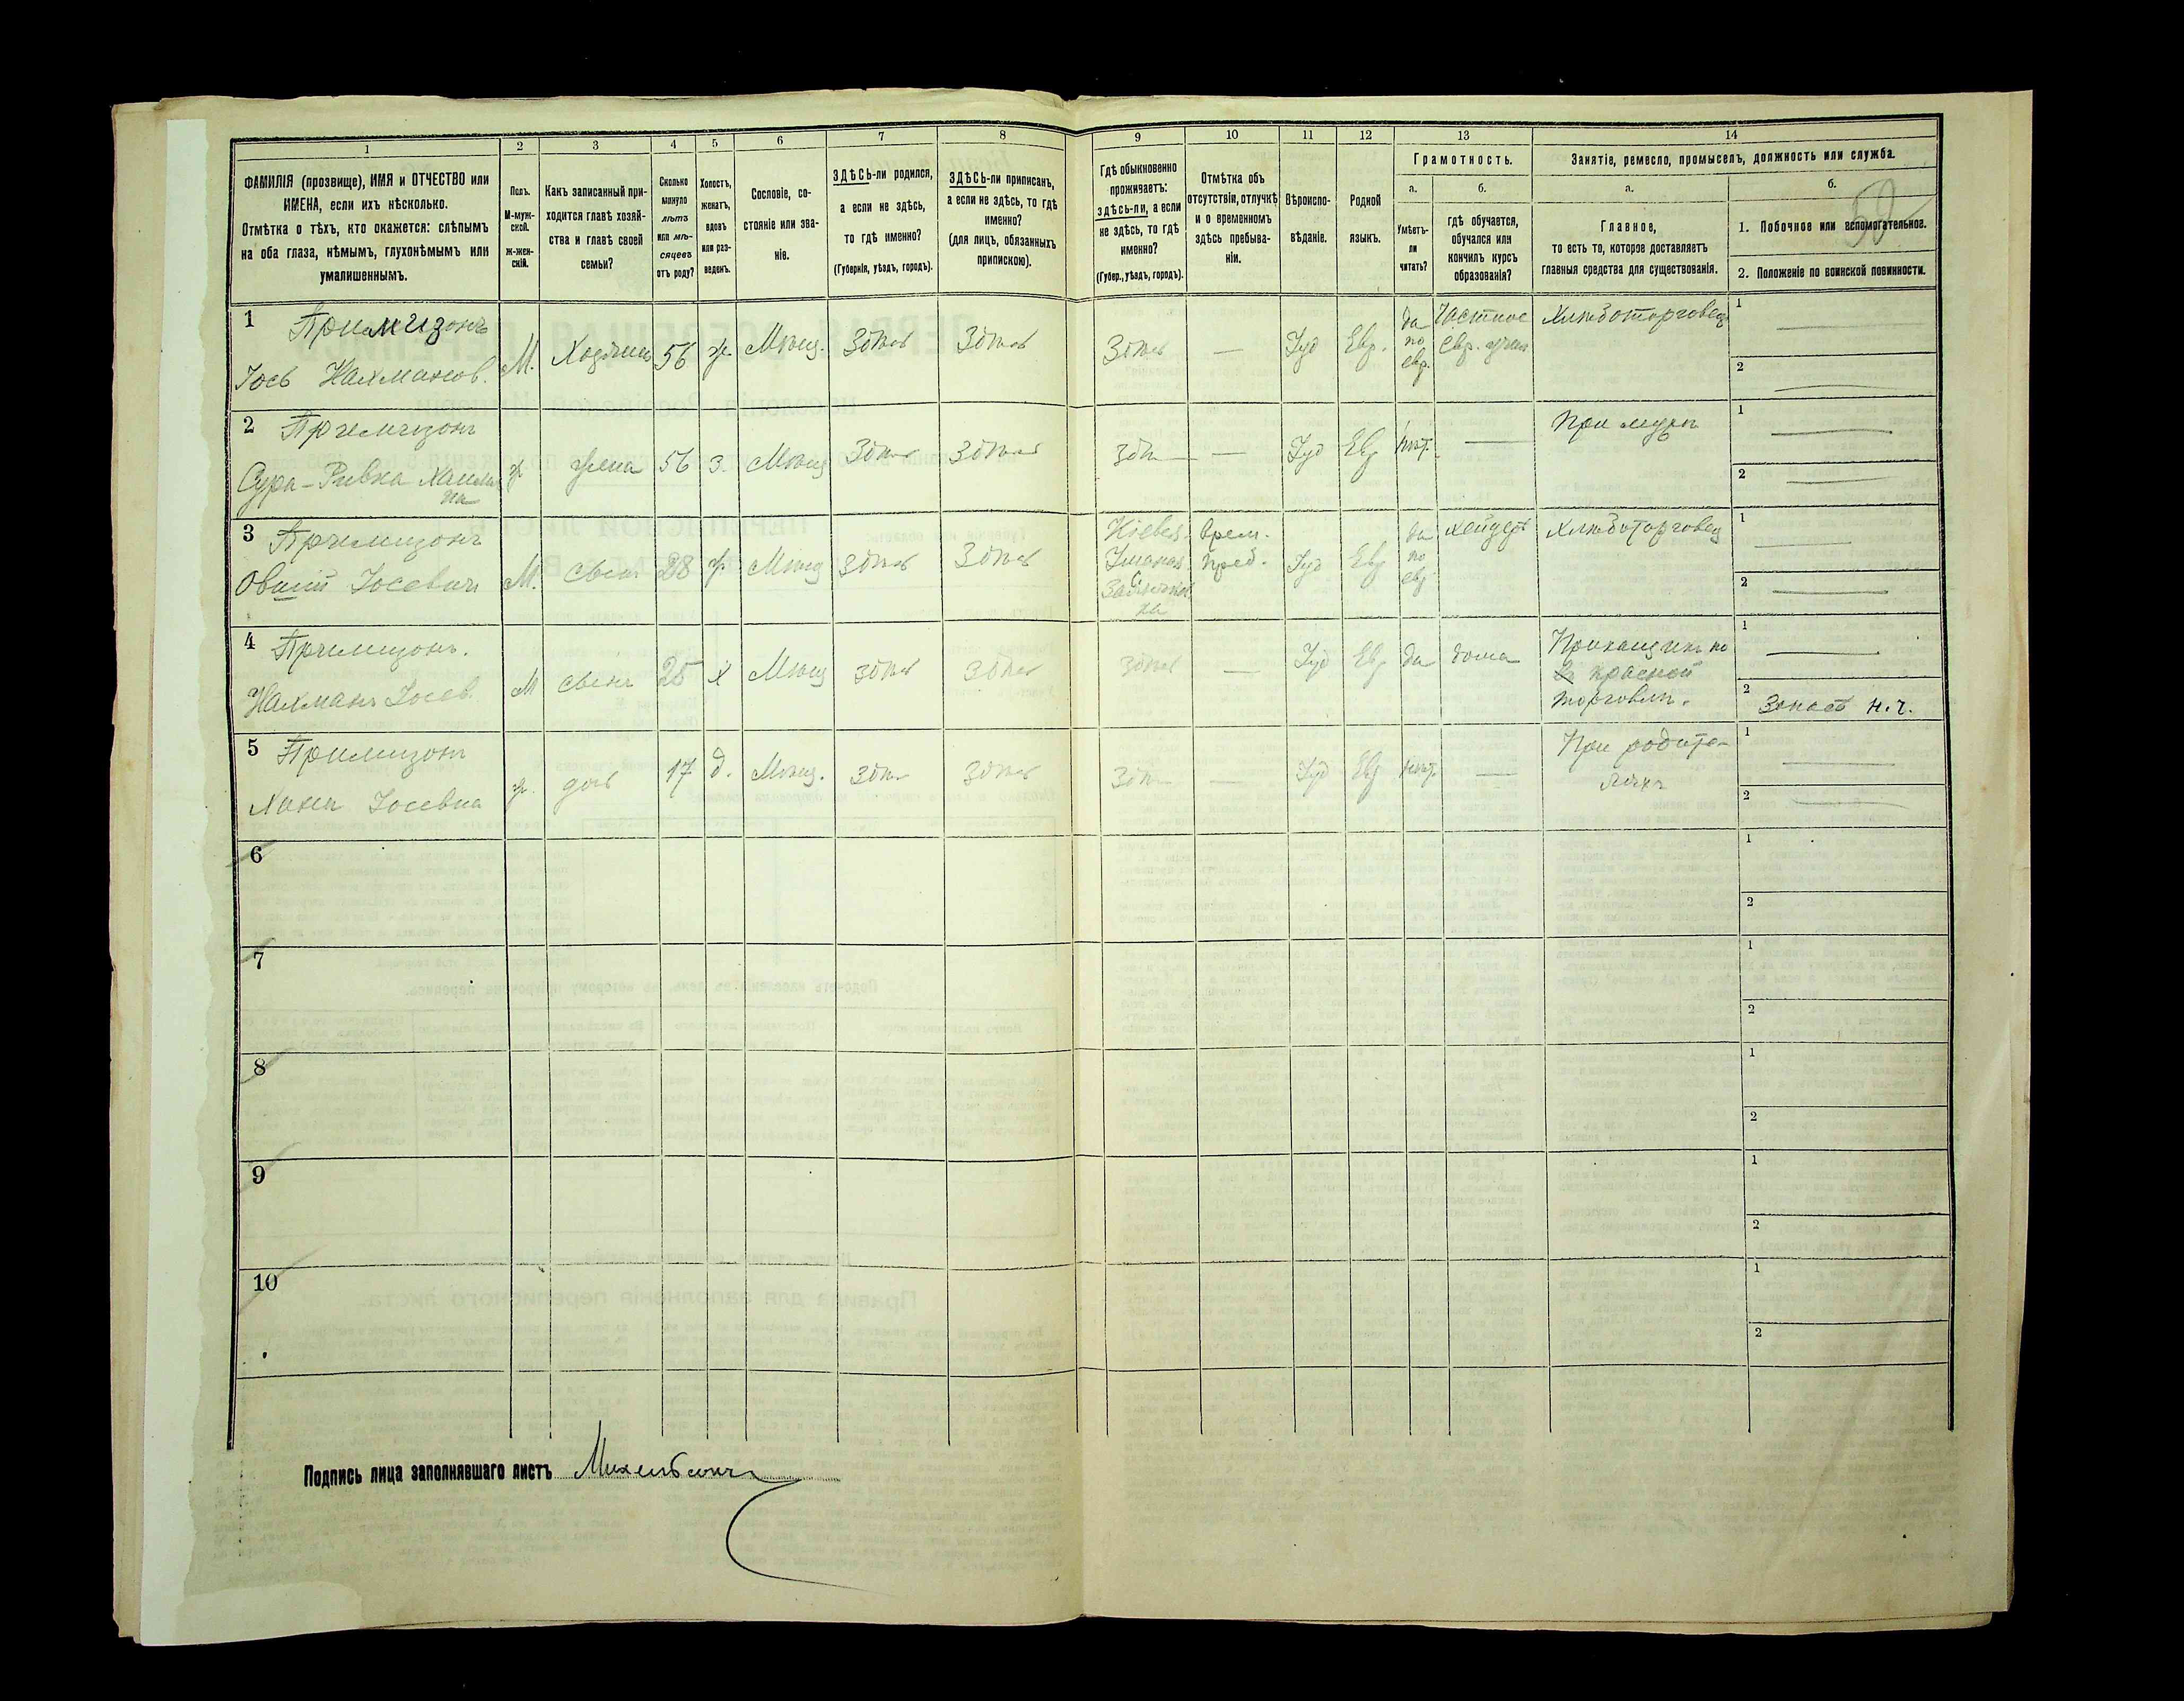 1 2 3 4 5 6 7 8 9 10 11 12 13 14
ФАМИЛІЯ (прозвище), ИМЯ и ОТЧЕСТВО или
ИМЕНА, если ихъ нѣсколько.
Отмѣтка о тѣхъ, кто окажется: слѣпымъ
на оба глаза, нѣмымъ, глухонѣмымъ или
умалишеннымъ.
Полъ.
М-муж-
ской.
ж-жен-
скій.
Какъ записанный при-
ходится главѣ хозяй-
ства и главѣ своей
семьи?
Сколько
минуло
лѣтъ
или мѣ-
сяцевъ
отъ роду?
Холостъ,
женатъ,
вдовъ
или раз-
веденъ.
Сословіе, со-
стояніе или зва-
ніе.
ЗДѢСЬ-ли родился,
а если не здѣсь,
то гдѣ именно?
(Губернія, уѣздъ, городъ).
ЗДѢСЬ-ли приписанъ,
а если не здѣсь, то гдѣ
именно?
(для лицъ, обязанныхъ
припискою).
Гдѣ обыкновенно
проживаетъ:
здѣсь-ли, а если
не здѣсь, то гдѣ
именно?
(Губер., уѣздъ, городъ).
Отмѣтка объ
отсутствіи, отлучкѣ
и о временномъ
здѣсь пребыва-
ніи.
Вѣроиспо-
вѣданіе.
Родной
языкъ.
Грамотность.
а.
Умѣетъ-
ли
читать?
б.
гдѣ обучается,
обучался или
кончилъ курсъ
образованія?
Занятіе, ремесло, промыселъ, должность или служба.
а.
Главное,
то есть то, которое доставляетъ
главныя средства для существованія.
б.
1. Побочное или вспомогательное.
2. Положеніе по воинской повинности.
1 Примизонъ
Іось Нахманов. М. Хозяинъ 56 ж. Мѣщ. Здѣсь Здѣсь Здѣсь — Іуд Евр. да по евр. Частное евр. учил Хлѣботорговецъ
1 —
2 —
2 Примизонъ
Сура-Ривка Хаимовна ж жена 56 З. Мѣщ Здѣсь Здѣсь Здѣ — Іуд Евр нѣт. — При мужѣ
1 —
2 —
3 Примизонъ
Овшій Іосевичъ М. сынъ 28 ж. Мѣщ Здѣсь Здѣсь Кіевск. Уманск. Врем. преб. Іуд Евр да по евр хейдеръ Хлѣботорговец
1 —
2 —
4 Примизонъ.
Нахманъ Іосев. М сынъ 25 х Мѣщ здѣсь здѣсь здѣсь — Іуд Евр да дома Прикащикъ по красной торговлѣ.
1 —
2 Запасъ н.ч.
5 Примизонъ
Хана Іосевна ж. дочь 17 д. Мѣщ. здѣс здѣсь Здѣ — Іуд Евр нѣт. — При родителяхъ
1 —
2 —
6
1
2
7
1
2
8
1
2
9
1
2
10
1
2
Подпись лица заполнявшаго листъ Михельсонъ